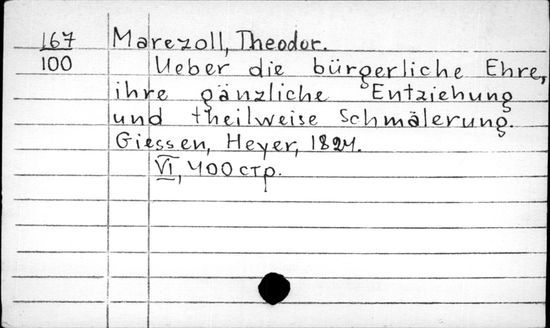 167 Marezoll, Theodor.
100 Ueber die bürgerliche Ehre,
ihre gänzliche Entziehung
und theilweise Schmälerung.
Giessen, Heyer, 1824.
VI, 400 стр.